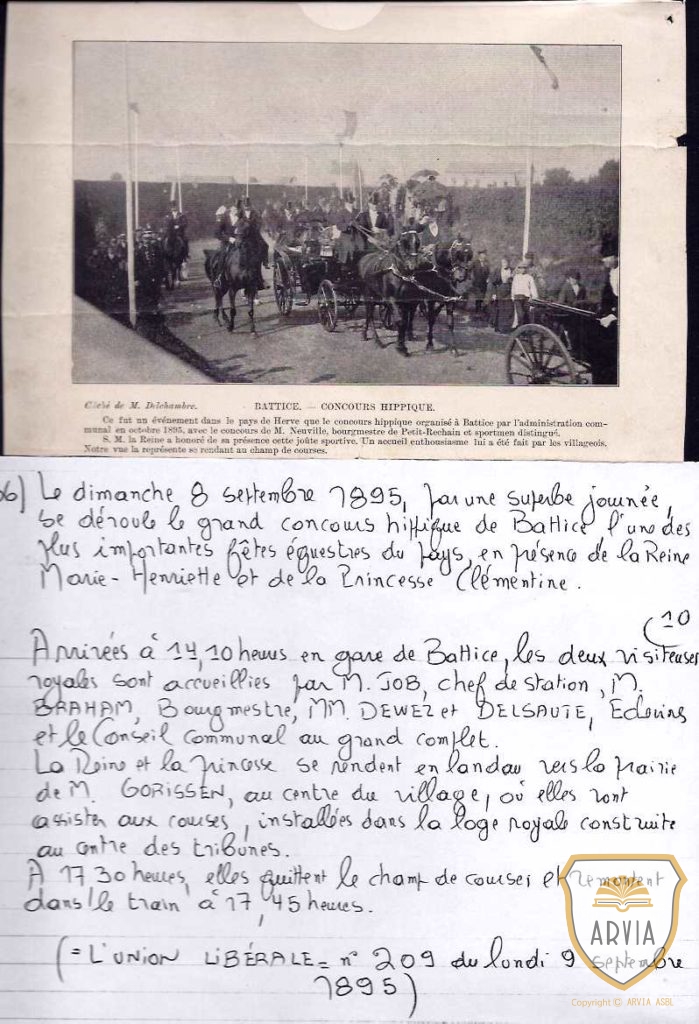 Cliché de M. Delchambre.
BATTICE. — CONCOURS HIPPIQUE.
Ce fut un événement dans le pays de Herve que le concours hippique organisé à Battice par l'administration com-
munal en octobre 1895, avec le concours de M. Neuville, bourgmestre de Petit-Rechain et sportmen distingué.
S. M. la Reine a honoré de sa présence cette joûte sportive. Un accueil enthousiasme lui a été fait par les villageois.
Notre vue la représente se rendant au champ de courses.
6) Le dimanche 8 septembre 1895, par une superbe journée,
se déroule le grand concours hippique de Battice, l'une des
plus importantes fêtes équestres du pays, en présence de la Reine
Marie-Henriette et de la Princesse Clémentine.
(10
Arrivées à 14,10 heures en gare de Battice, les deux visiteuses
royales sont accueillies par M. JOB, chef de station, M.
BRAHAM, Bourgmestre, MM. DEWEZ et DELSAUTE, Echevins
et le Conseil communal au grand complet.
La Reine et la princesse se rendent en landau vers la prairie
de M. GORISSEN, au centre du village, où elles vont
assister aux courses, installées dans la loge royale construite
au centre des tribunes.
A 17 30 heures, elles quittent le champ de courses et remontent
dans le train à 17,45 heures.
(= L'UNION LIBÉRALE = n° 209 du lundi 9 septembre
1895)
ARVIA
Copyright © ARVIA ASBL